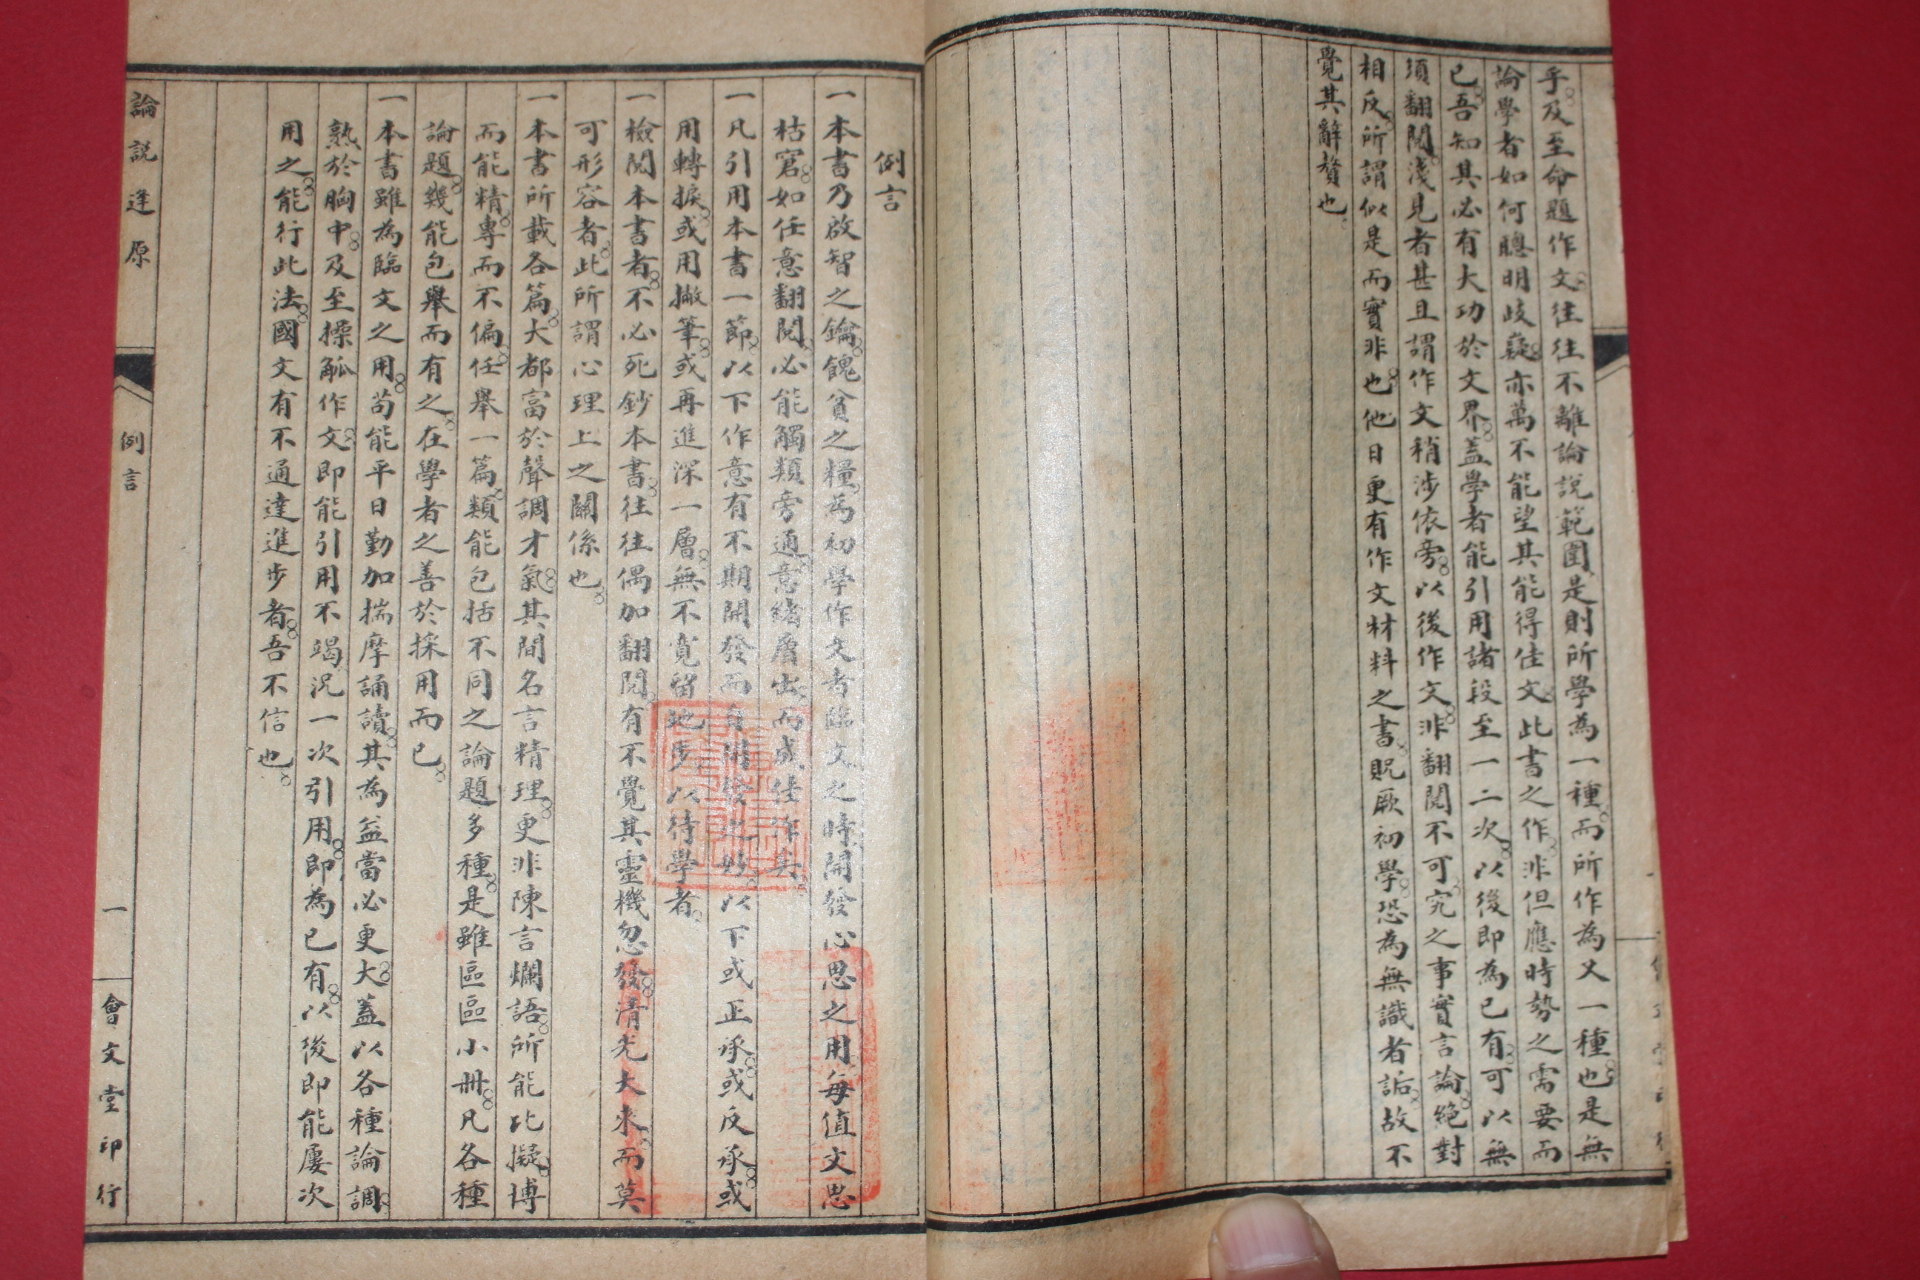 乎及至命題作文往往不離論說範圍是則所學為一種而所作為又一種也是無
論學者如何聰明歧嶷亦萬不能望其能得佳文此書之作非但應時勢之需要而
已吾知其必有大功於文界蓋學者能引用諸段至一二次以後即為己有可以無
須翻閱淺見者甚且謂作文稍涉依旁以後作文非翻閱不可究之事實言論絕對
相反所謂似是而實非也他日更有作文材料之書貺厥初學恐為無識者詬故不
覺其辭贅也
例言
一本書乃啟智之鑰餽貧之糧為初學作文者臨文之時開發心思之用每值文思
枯窘如任意翻閱必能觸類旁通意緒層出而成佳作矣
一凡引用本書一節以下作意有不期開發而自開發之妙以下或正承或反承或
用轉捩或用撇筆或再進深一層無不寬留地步以待學者
一檢閱本書者不必死鈔本書往往偶加翻閱有不覺其靈機忽發清光大來而莫
可形容者此所謂心理上之關係也
一本書所載各篇大都富於聲調才氣其間名言精理更非陳言爛語所能比擬博
而能精專而不偏任舉一篇類能包括不同之論題多種是雖區區小冊凡各種
論題幾能包舉而有之在學者之善於採用而已
一本書雖為臨文之用苟能平日勤加揣摩誦讀其為益當必更大蓋以各種論調
熟於胸中及至操觚作文即能引用不竭況一次引用即為已有以後即能屢次
用之能行此法國文有不通達進步者吾不信也
論說逢原
例言
一
會文堂印行